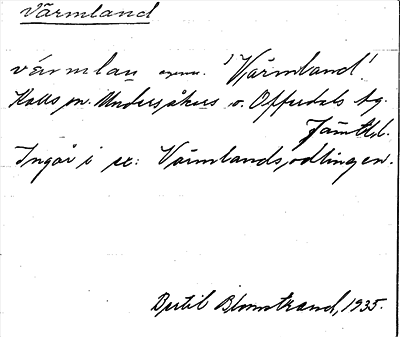 Värmland
värmlan egenn. 'Värmland'.
Kalls sn. Undersåkers o. Offerdals tg.
Jämtl.
Ingår i ex: Värmlandsodlingen.
Bertil Blomstrand, 1935.